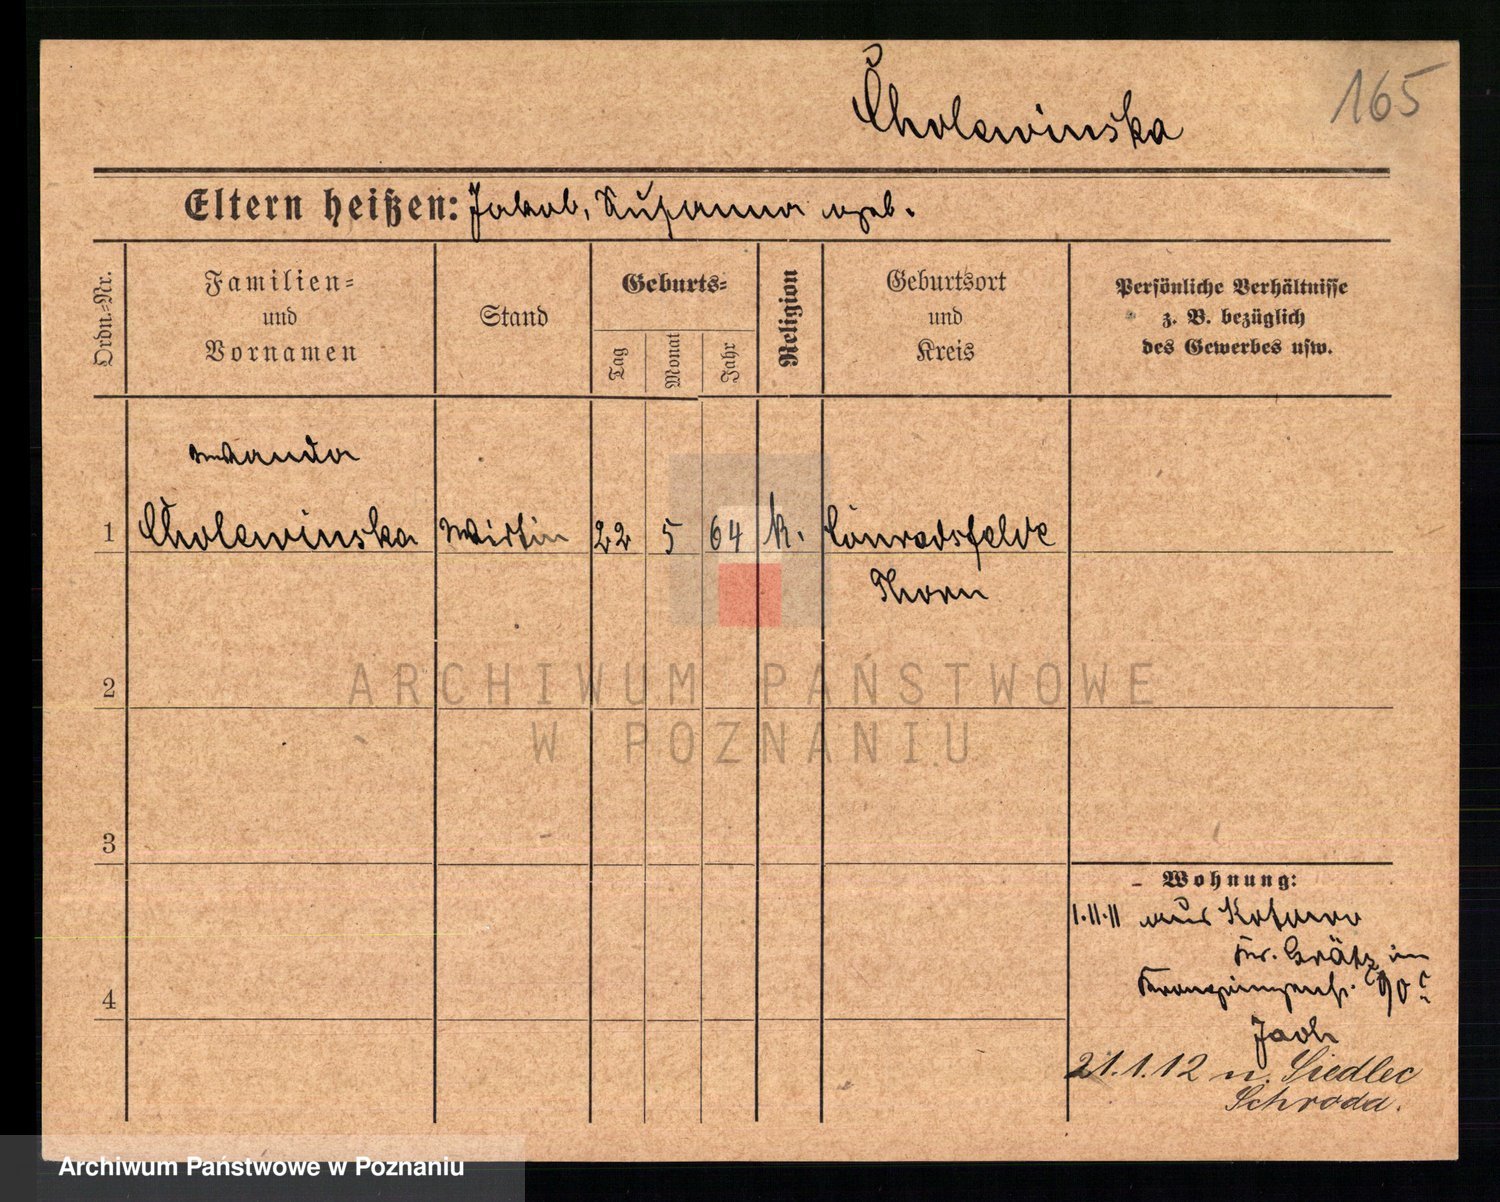 165
Cholewinska
Eltern heißen: Jakob, Susanna geb.
Ordn.-Nr.
Familien-
und
Vornamen
Stand
Geburts-
Tag
Monat
Jahr
Religion
Geburtsort
und
Kreis
Persönliche Verhältnisse
z. B. bezüglich
des Gewerbes usw.
Wanda
1 Cholewinska Wirtin 22 5 64 k. Conradsfelde
Thorn
ARCHIWUM PAŃSTWOWE
W POZNANIU
2
3
Wohnung:
1.11.11 aus Kotowo
Kr. Grätz in
4
Kronprinzenstr. 90
21.1.12 n. Siedlec
Schroda.
Archiwum Państwowe w Poznaniu